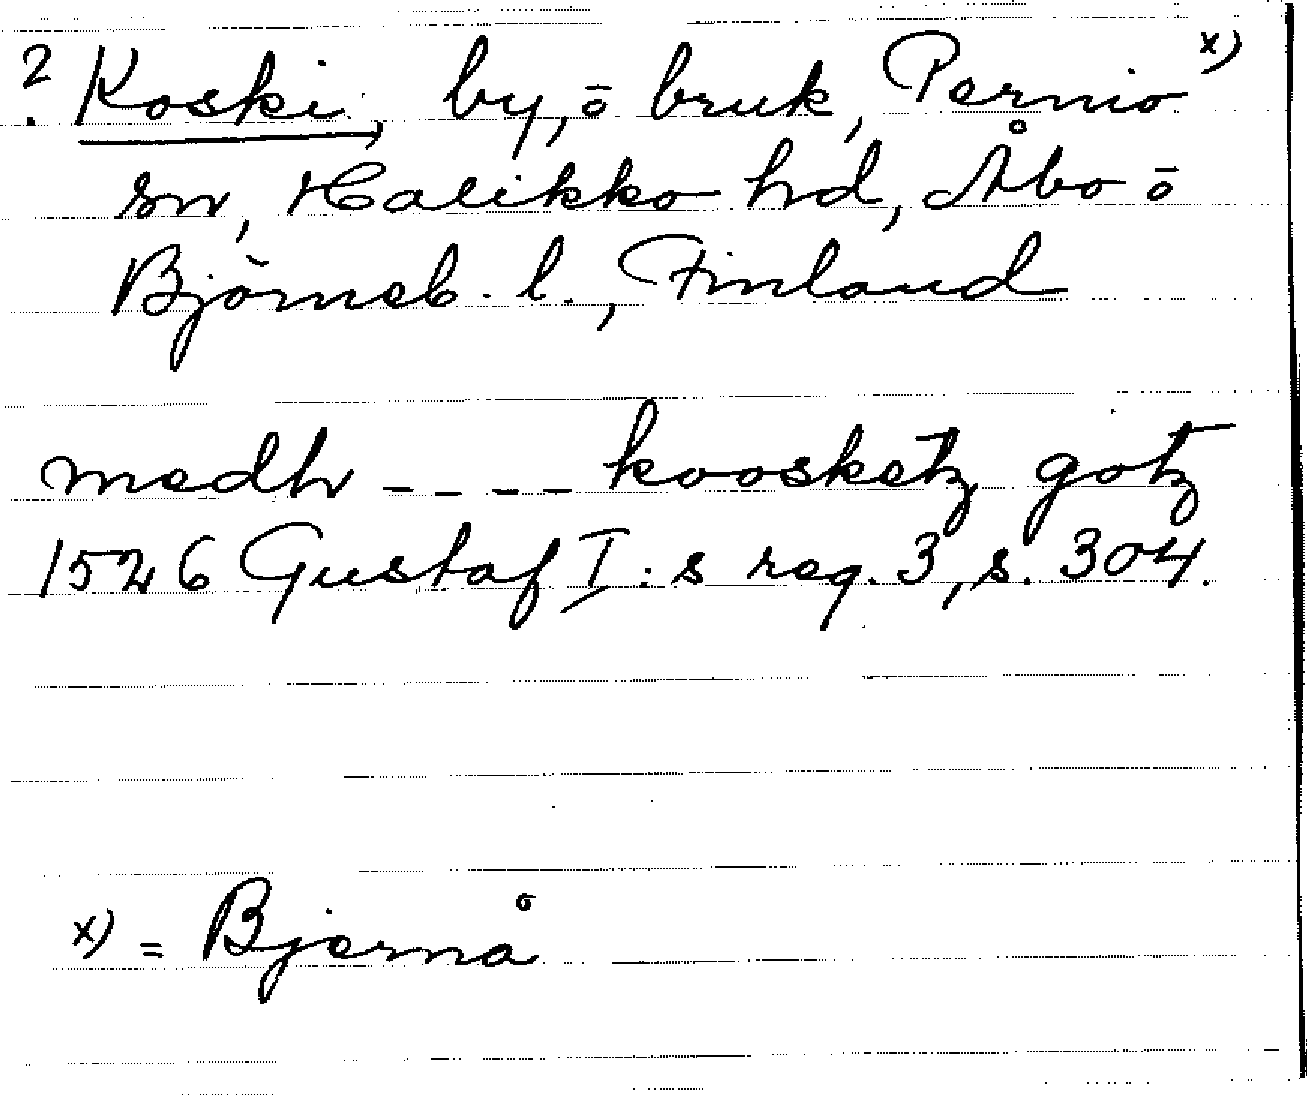 ? Koski, by, ō bruk, Pernio x)
sn, Halikko hd, Åbo ō
Björneb. l., Finland
medh - - - - koosketz gotz
1526 Gustaf I:s reg. 3, s. 304.
x) = Bjernå